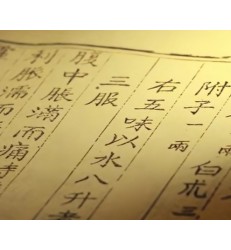 附子一兩 白朮三
右五味以水八升煮
三服
腹中脹滿而痛
利脹滿而